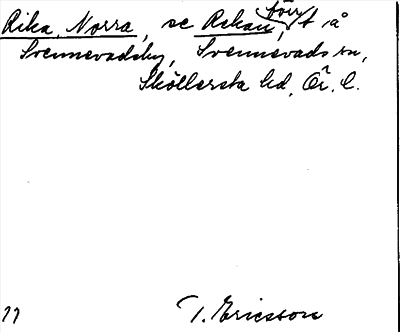 Rika, Norra, se Rekan, förr t å
Svennevadsby, Svennevads sn,
Sköllersta hd, Ör. l.
T. Ericsson